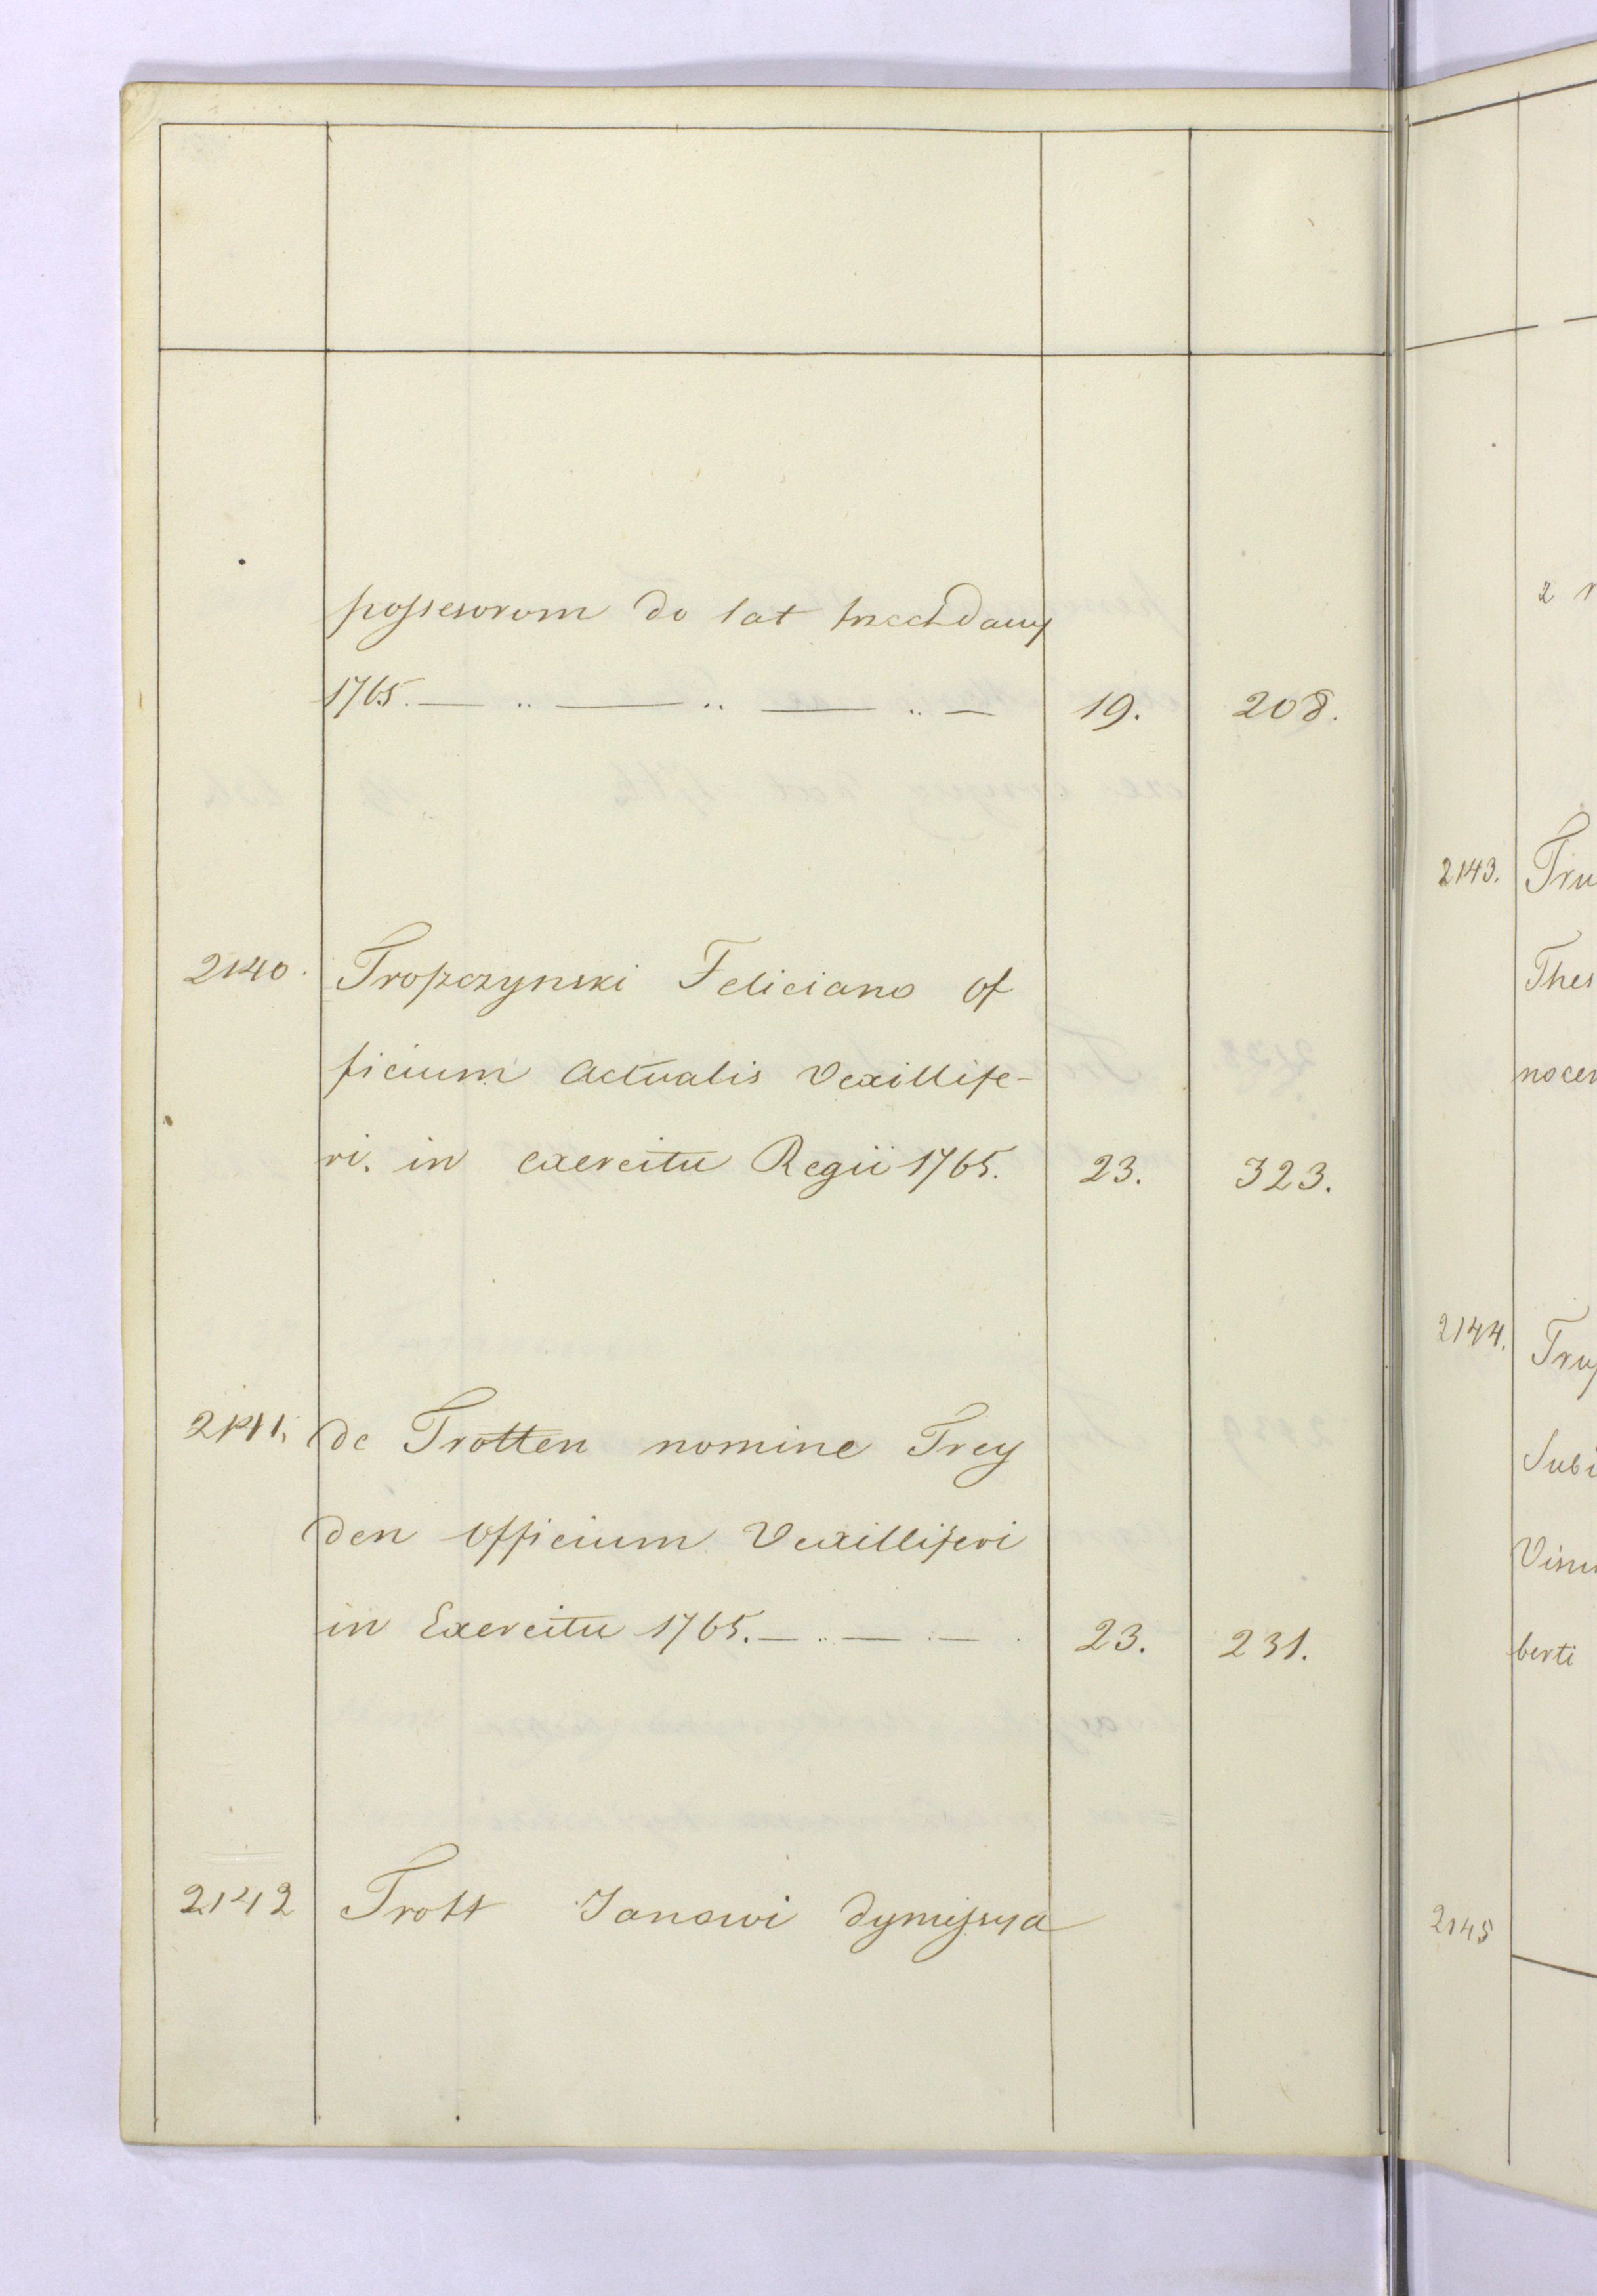 possesorom do lat trzech dany
1765. — .. — .. — .. — 19. 208.
2140. Troszczynski Feliciano of
ficium actualis Vexillife-
ri. in exercitu Regii 1765. 23. 323.
2141. de Trotten nomine Trey
den officium Vexilliferi
in Exercitu 1765. — .. — . — . 23. 231.
2142 Trott Janowi dymissya
2143. Tru
Thes
nocen
2144. Tru
Subi
berti
2145